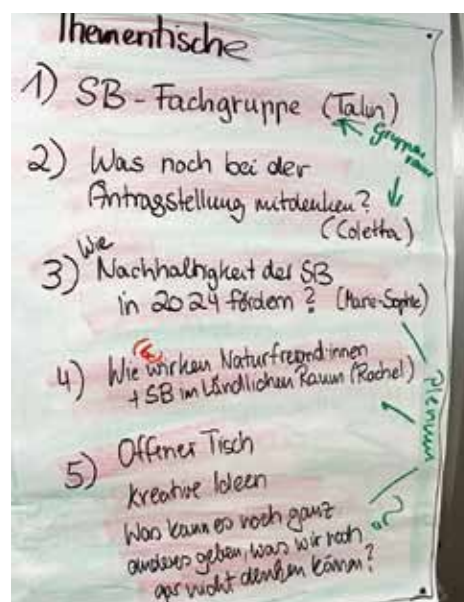 Thementische
1) SB-Fachgruppe (Talin)
Gruppen
raum
2) Was noch bei der
Antragsstellung mitdenken?
(Coletta)
3) Wie Nachhaltigkeit der SB
in 2024 fördern? (Marie-Sophie)
4) Wie wirken Naturfreund:innen
+ SB im Ländlichen Raum (Rachel)
Plenum
5) Offener Tisch
Kreative Ideen
Was kann es noch ganz
anderes geben, was wir noch
gar nicht denken können?